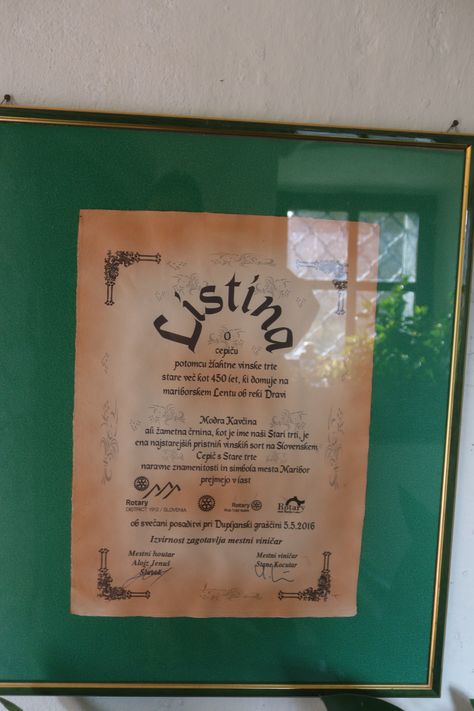 Listina
o
cepiču
potomcu žlahtne vinske trte
stare več kot 450 let, ki domuje na
mariborskem Lentu ob reki Dravi
Modra Kavčina
ali žametna črnina, kot je ime naši Stari trti, je
ena najstarejših pristnih vinskih sort na Slovenskem
Cepič s Stare trte
naravne znamenitosti in simbola mesta Maribor
prejmejo v last
Rotary
DISTRICT 1912 / SLOVENIA
Rotary
Rotary
ob svečani posaditvi pri Dupljanski graščini 5.5.2016
Izvirnost zagotavlja mestni viničar
Mestni houtar
Mestni viničar
Alojz Jenuš
Stane Kocutar